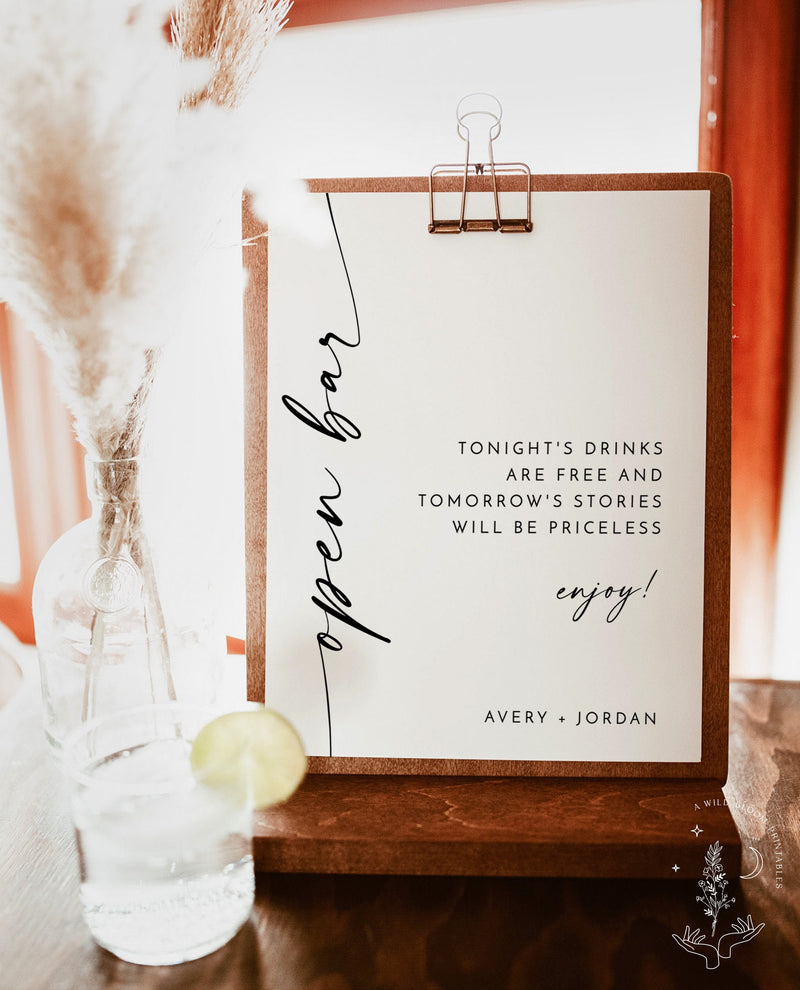 open bar
TONIGHT'S DRINKS
ARE FREE AND
TOMORROW'S STORIES
WILL BE PRICELESS
enjoy!
AVERY + JORDAN
A WILD BLOOM PRINTABLES